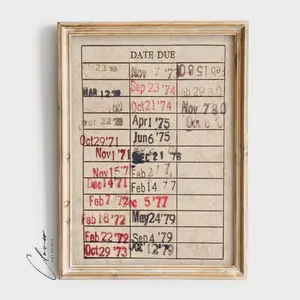 DATE DUE
23 '69 Nov 7 '7 Feb 15 8
MAR 12 '7 Sep 23 '74 Feb 29 80
Oct 21 '74 Nov 7 80
22 Apr 1 '75 Oct 8
Oct 29 '71 Jun 6 '75
Nov 1 '71 DEC 21 '78
Nov 15 '7 Feb 2
Dec 14 '71 Feb 14 77
Feb 7 '72 5 '77
Feb 18 '72 May 24 '79
Feb 22 '79 Sep 4 '79
Oct 29 '73 Oct 12 '79
Clover